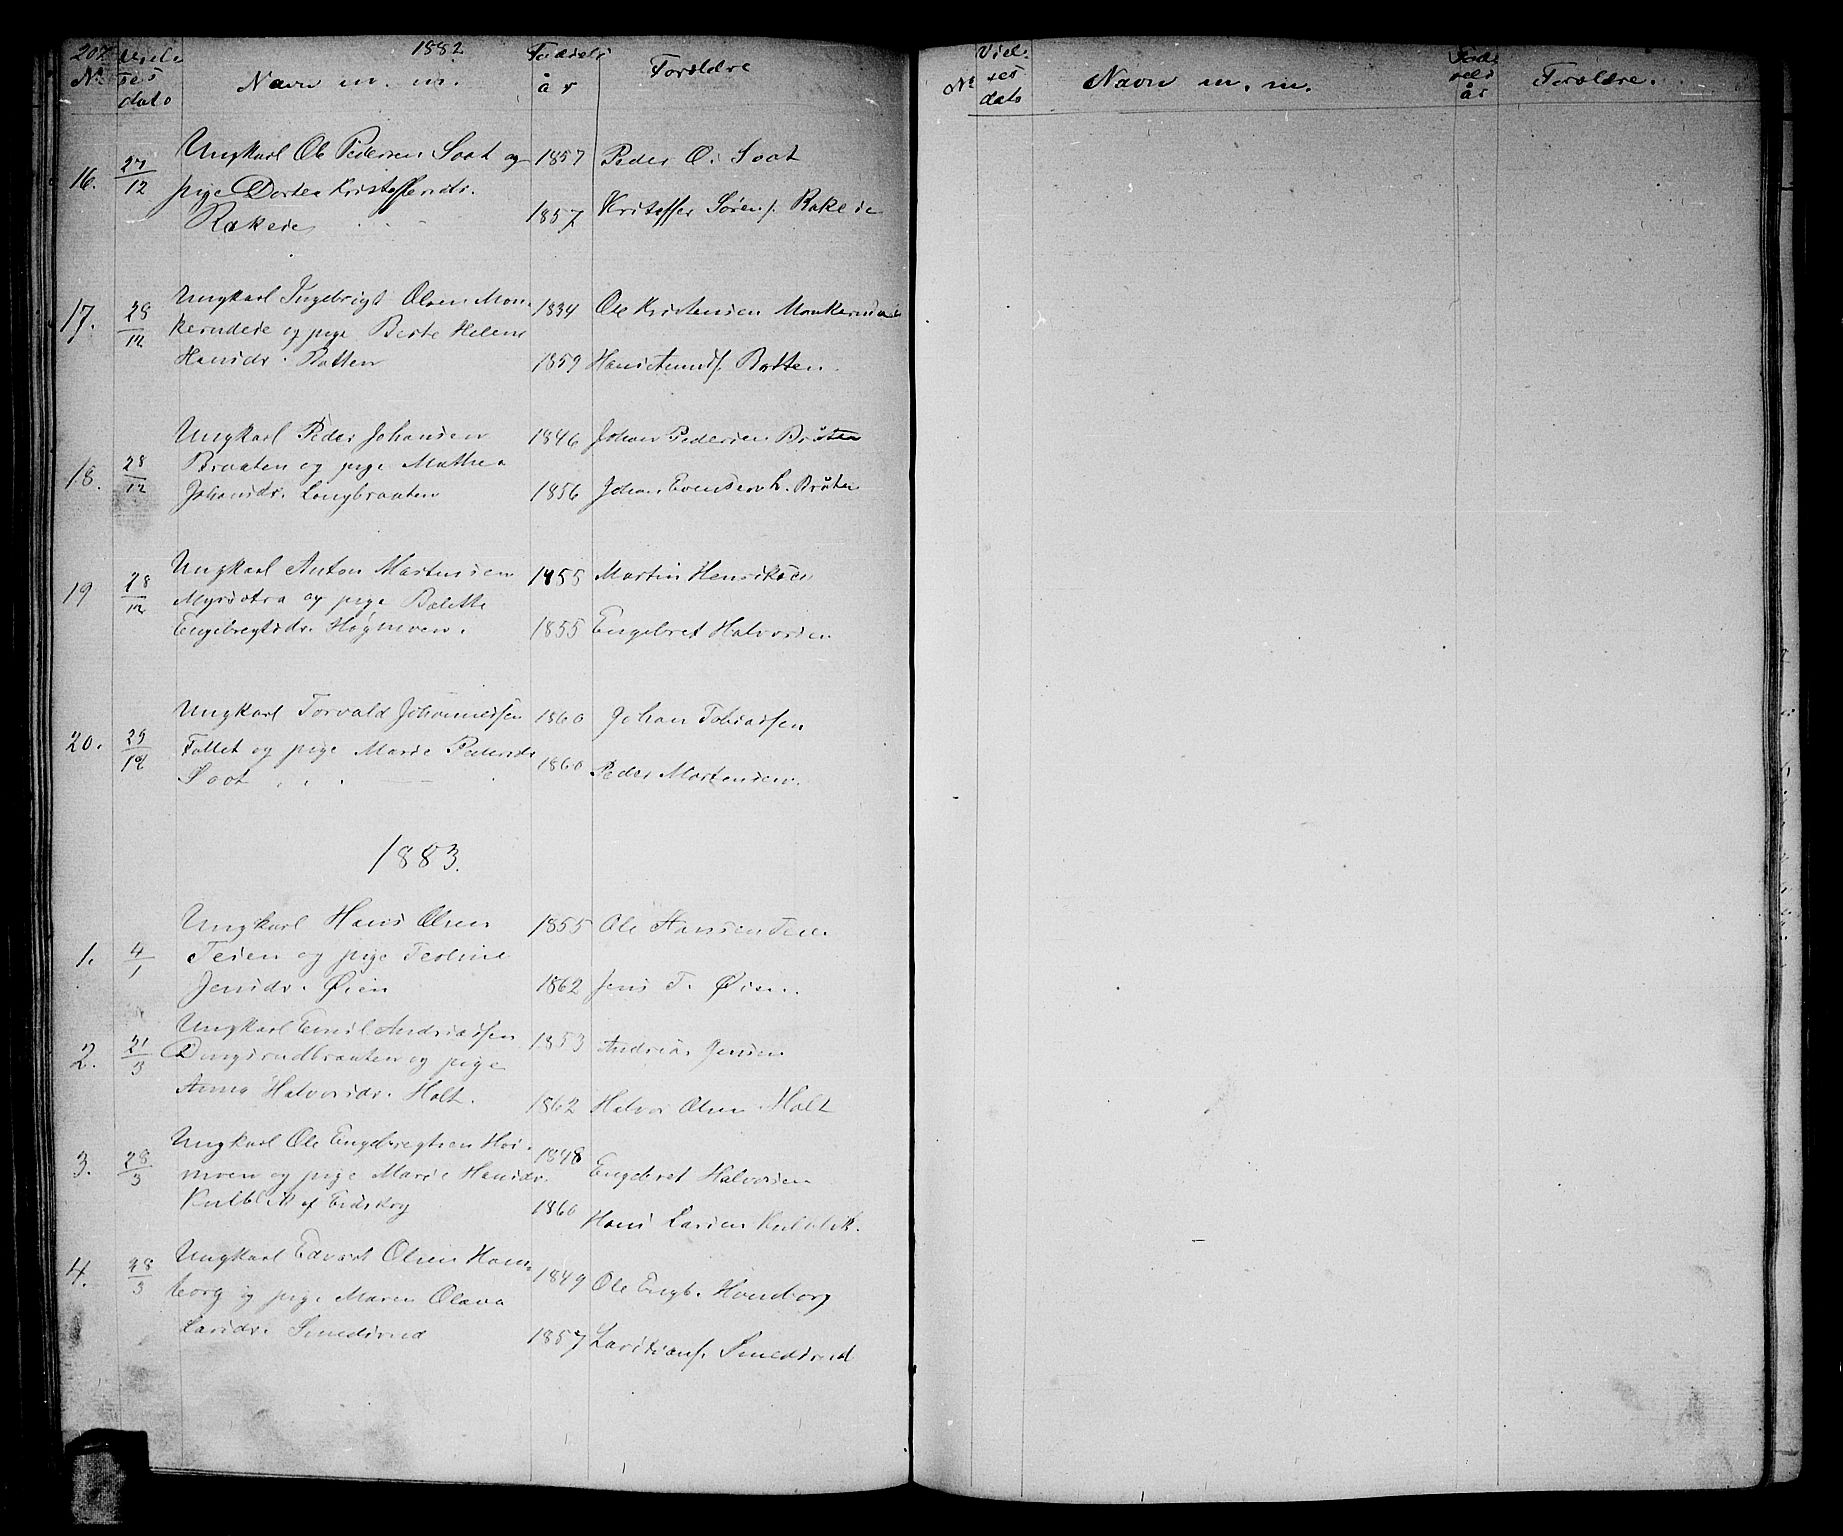 207 Viel-
№ ses
dato
1882
Navn m. m.
Fødsels
år
Forældre
16. 27/12 Ungkarl Ole Pedersen Saat og 1857 Peder O. Saat
pige Dortea Kristoffersdr.
Rakeie 1857 Kristoffer Sørens. Rakeie
17. 28/12 Ungkarl Ingebrigt Olsen Mon- 1834 Ole Kristensen
kerudeie og pige Berte Helene
Hansdr. Botten 1859 Hans Amunds. Botten.
18. 28/12 Ungkarl Peder Johansen 1846 Johan Pedersen Bråten
Braaten og pige Mathea
Johansdr. Langbraaten 1856 Johan Evensen L. Bråten
19 28/12 Ungkarl Anton Martinsen 1855 Martin Henriksen
og pige Bolette
Engebregtsdr. Høgmoen. 1855 Engebret Halvorsen
20. 29/12 Ungkarl Torvald Johannessen 1860 Johan Tobiassen
Fallet og pige Marie Pedersdr
Saat 1860 Peder Mortensen.
1883.
1. 4/1 Ungkarl Hans Olsen 1855 Ole Hansen
Teien og pige
Jensdr. Øien 1862 Jens T. Øien.
2. 21/3 Ungkarl Emil Andreassen 1853 Andreas Jensen
og pige
Anna Halvorsdr. Holt. 1862 Halvor Olsen Holt
3. 28/3 Ungkarl Ole Engebregtsen Høi- 1848 Engebret Halvorsen
moen og pige Marie Hansdr.
Kulblik af Eidskog 1860 Hans Larsen Kulblik.
4. 28/3 Ungkarl Edvart Olsen Hom- 1849 Ole Engb. Homborg
borg og pige Maren Olava
Larsdr. Smedsrud 1857 Smedsrud
№
Viel-
ses
dato
Navn m. m.
Føds
els
år
Forældre.